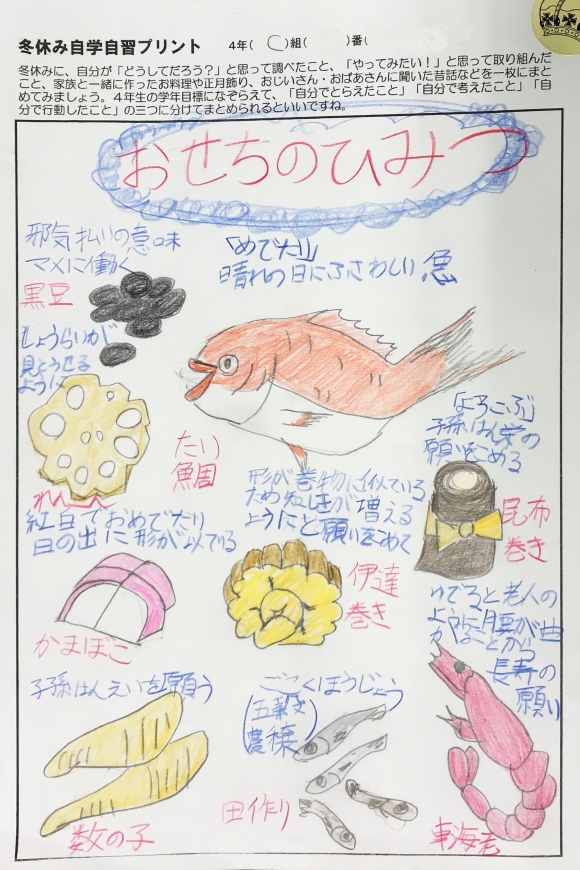 冬休み自学自習プリント 4年( )組( )番(
冬休みに、自分が「どうしてだろう?」と思って調べたこと、「やってみたい!」と思って取り組んだ
こと、家族と一緒に作ったお料理や正月飾り、おじいさん・おばあさんに聞いた昔話などを一枚にまと
めてみましょう。4年生の学年目標になぞらえて、「自分でとらえたこと」「自分で考えたこと」「自
分で行動したこと」の三つに分けてまとめられるといいですね。
おせちのひみつ
邪気払いの意味
マメに働く
黒豆
「めでたい」
晴れの日にふさわしい
しょうらいが
見とうせる
ように
れんこん
たい
鯛
「よろこぶ」
子孫はん栄の
願いをこめる
昆布
巻き
形が巻物に似ている
ため知しきが増える
ようにと願いをこめて
伊達
巻き
紅白でおめでたい
日の出に形が以ている
かまぼこ
ゆでると老人の
ように腰が曲
がることから
長寿の
願い
子孫はんえいを願う
数の子
ごこくほうじょう
(五穀
豊穣)
田作り
海老